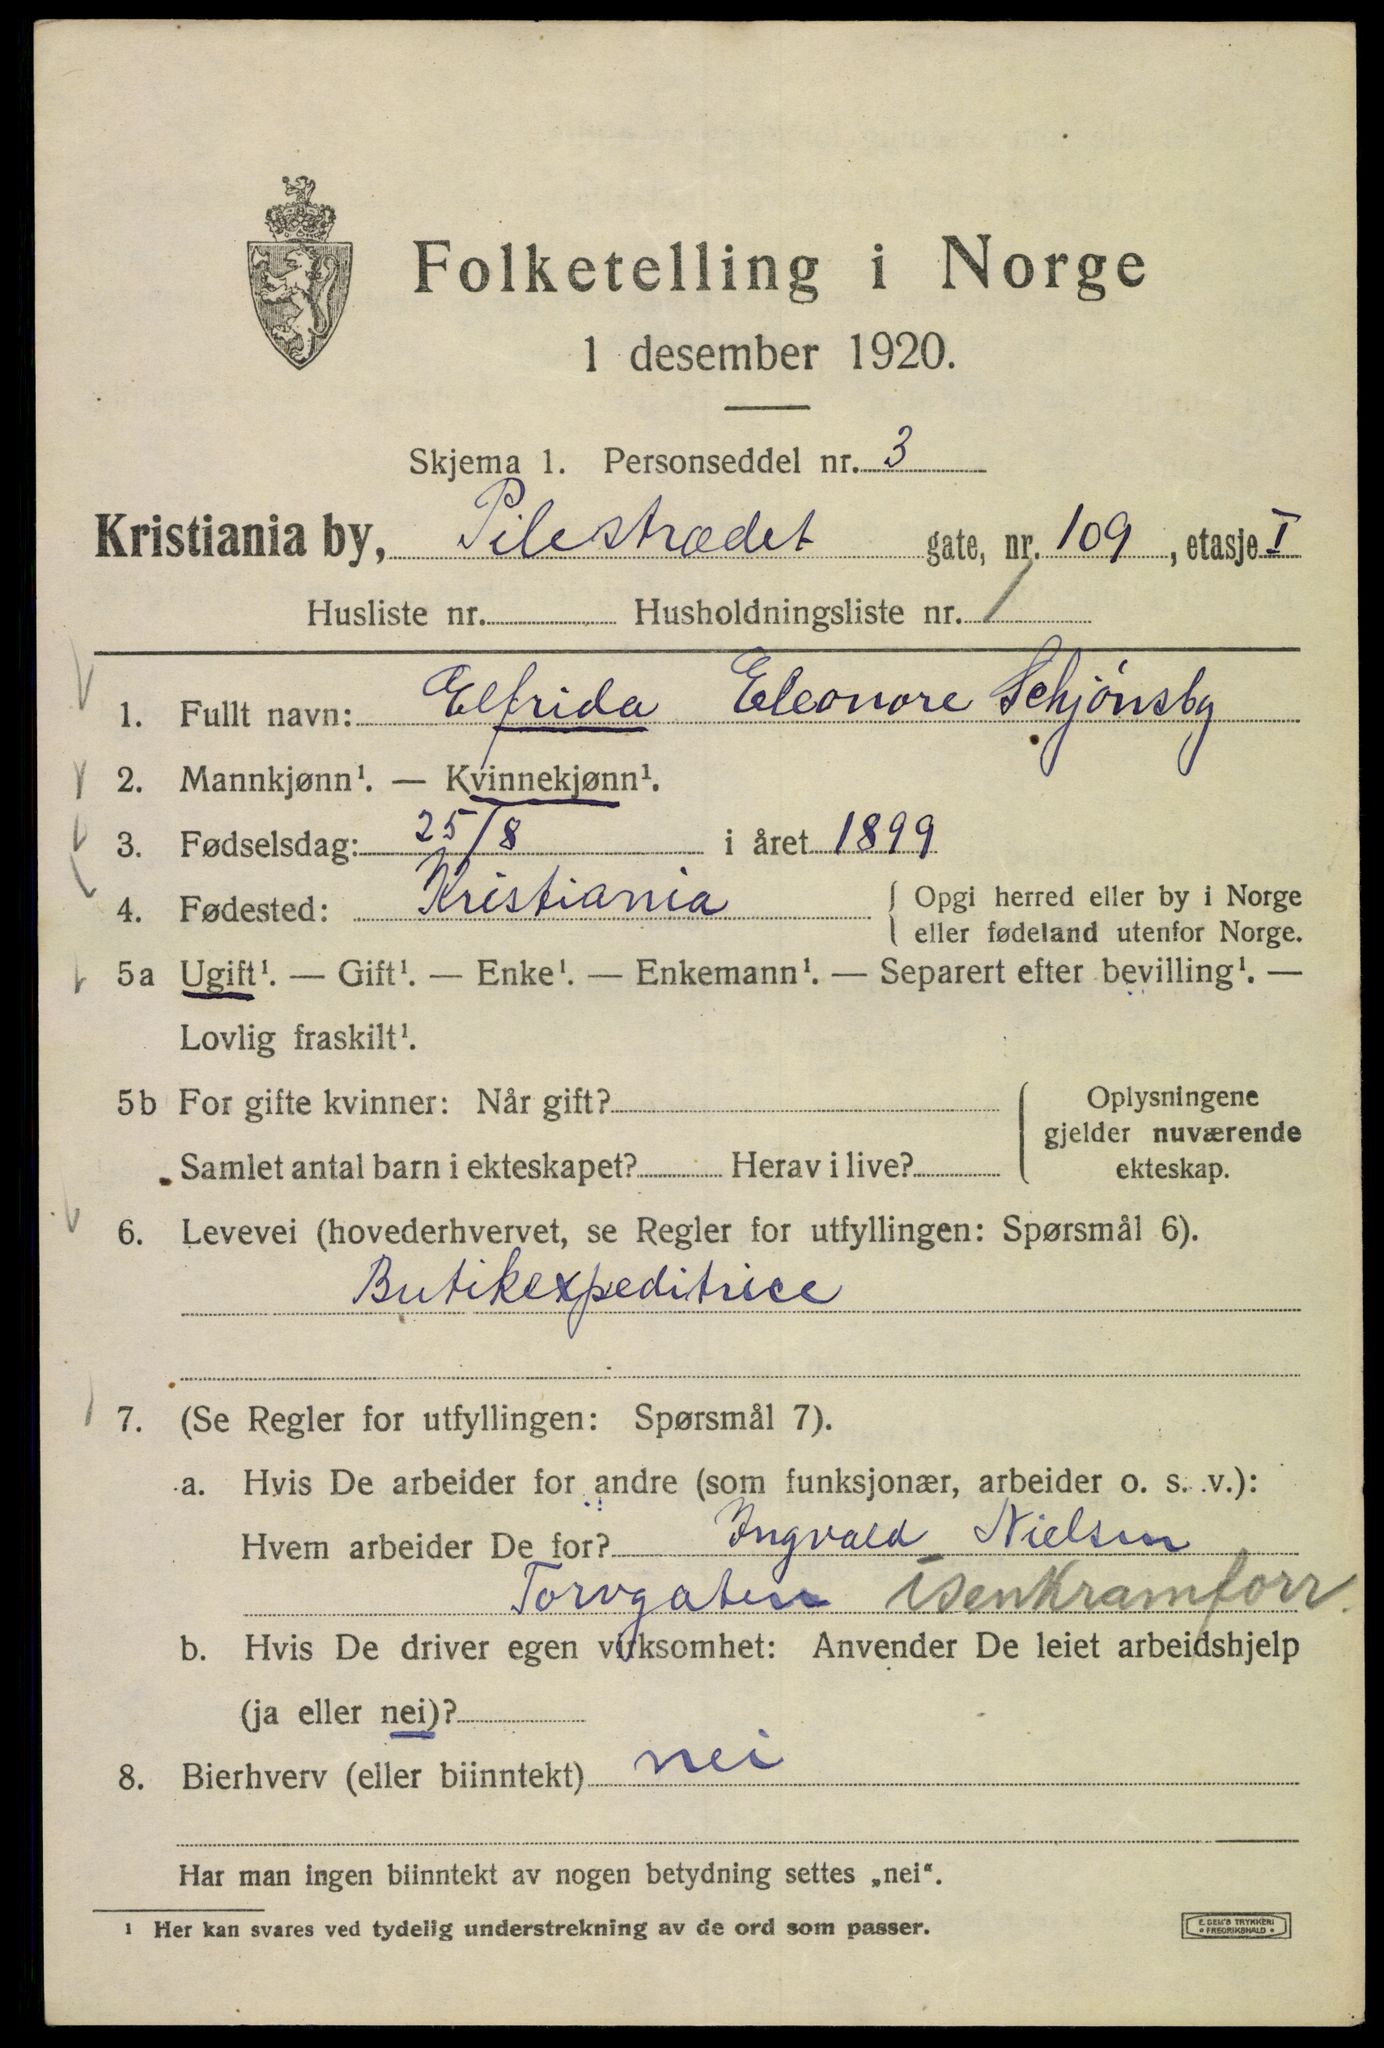 Folketelling i Norge
1 desember 1920.
Skjema 1. Personseddel nr. 3
Kristiania by, Pilestrædet gate, nr. 109, etasje I
Husliste nr. Husholdningsliste nr. 1
1. Fullt navn: Elfrida Eleonore Schjönsby
2. Mannkjønn¹. — Kvinnekjønn¹.
3. Fødselsdag: 25/8 i året 1899
4. Fødested: Kristiania { Opgi herred eller by i Norge
eller fødeland utenfor Norge.
5a Ugift¹. — Gift¹. — Enke¹. — Enkemann¹. — Separert efter bevilling¹. —
Lovlig fraskilt¹.
5b For gifte kvinner: Når gift? { Oplysningene
gjelder nuværende
Samlet antal barn i ekteskapet? Herav i live? ekteskap.
6. Levevei (hovederhvervet, se Regler for utfyllingen: Spørsmål 6).
Butikexpeditrice
7. (Se Regler for utfyllingen: Spørsmål 7).
a. Hvis De arbeider for andre (som funksjonær, arbeider o. s. v.):
Hvem arbeider De for? Ingvald Nielsen
Torvgaten isenkramforr.
b. Hvis De driver egen virksomhet: Anvender De leiet arbeidshjelp
(ja eller nei)?
8. Bierhverv (eller biinntekt) nei
Har man ingen biinntekt av nogen betydning settes „nei“.
¹ Her kan svares ved tydelig understrekning av de ord som passer.
E. SEM'S TRYKKERI
• FREDRIKSHALD •